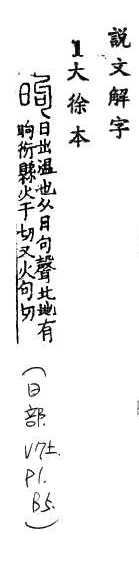 說文解字
1大徐本
昫 日出溫也从日句聲北地有
昫衍縣火于切又火句切
(日部 V7上. P1. B5.)